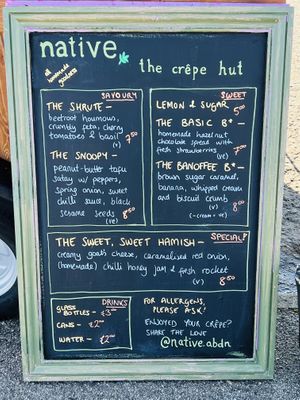 native.
the crêpe hut
all homemade goodness
SAVOURY
THE SHRUTE -
beetroot houmous,
crumbly feta, cherry
tomatoes & basil 7.50
(v)
THE SNOOPY -
peanut-butter tofu
satay w/ peppers,
spring onion, sweet
chilli sauce, black
sesame seeds 8.50
(ve)
SWEET
LEMON & SUGAR 5.00
THE BASIC B* -
homemade hazelnut
chocolate spread with
fresh strawberries 7.00
(ve)
THE BANOFFEE B* -
brown sugar caramel,
banana, whipped cream
and biscuit crumb 8.00
(v)
(-cream = ve)
SPECIAL!
THE SWEET, SWEET HAMISH -
creamy goat's cheese, caramelised red onion,
(homemade) chilli honey jam & fresh rocket
(v) 8.50
DRINKS
GLASS
BOTTLES - £3
CANS - £2
WATER - £2
FOR ALLERGENS,
PLEASE ASK!
ENJOYED YOUR CRÊPE?
SHARE THE LOVE
@native.abdn